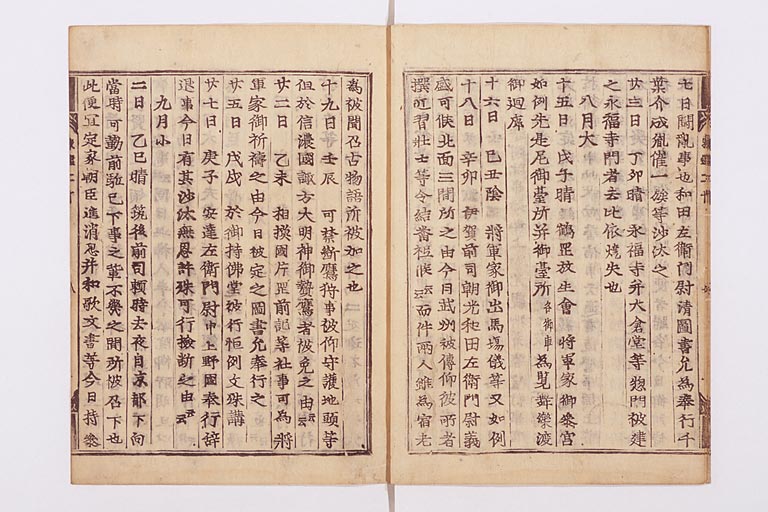 七日聞亂事也和田左衛門尉清圖書允為奉行千
葉介成胤催一族等沙汰之
廿三日 丁卯晴 永福寺并大倉堂等惣門被建
之永福寺門者去比依燒失也
八月大
十五日 戊子晴 鶴罡放生會 將軍家御參宮
如例先是尼御臺所并御臺所各御車為覽舞樂渡
御廻廊
十六日 己丑陰 將軍家御出馬塲儀等又如例
十八日 辛卯 伊賀前司朝光和田左衛門尉義
盛可候北面三間所之由今日武州被傳仰彼所者
撰近習壯士等令結番祗候云云而件兩人雖為宿老
為被聞召古物語所被加之也
十九日 壬辰 可禁斷鷹狩事被仰守護地頭等
但於信濃國諏方大明神御贄鷹者被免之由云云
廿二日 乙未 相摸國片罡前記等社事可為將
軍家御祈禱之由今日被定之圖書允奉行之
廿五日 戊戌 於御持佛堂被行恒例文殊講
廿七日 庚子 天安達左衛門尉申上野國奉行辞
退事今日有其沙汰無恩許殊可行撿斷之由云云
九月小
二日 乙巳晴 筑後前司頼時去夜自京都下向
當時可勤前駈已下事之輩不幾之間所被召下也
此便宜定家朝臣進消息并和歌文書等今日持參